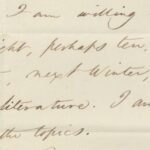 I am willing
ight, perhaps ten,
, next Winter,
literature. I am
the topics.